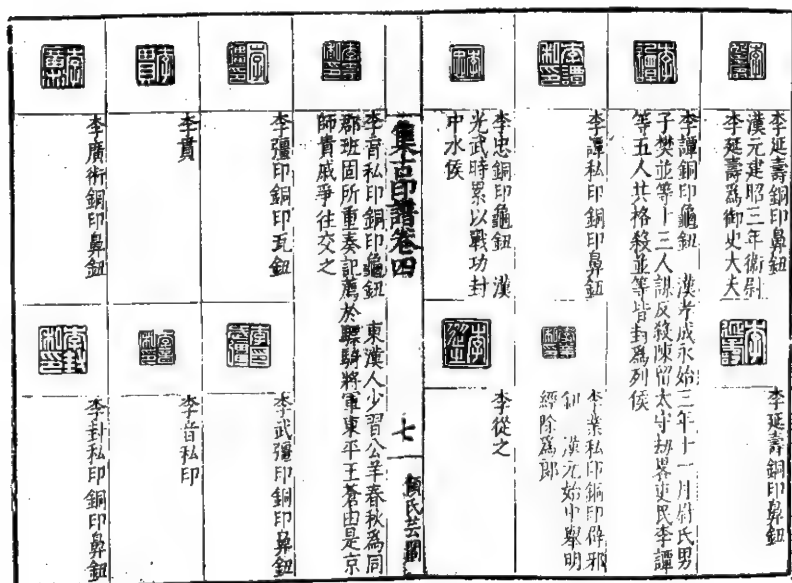 李延壽銅印龜鈕
漢元建昭三年衛尉
李延壽爲御史大夫
李延壽銅印鼻鈕
李譚銅印龜鈕　漢孝成永始三年十一月尉氏男
子樊並等十三人謀反殺陳留太守劫畧吏民李譚
等五人共格殺並等皆封爲列侯
李譚私印銅印鼻鈕
李業私印銅印辟邪
鈕　漢元始中舉明
經除爲郎
李忠銅印龜鈕　漢
光武時累以戰功封
中水侯
李從之
集古印譜卷四
七
顧氏芸閣
李育私印銅印龜鈕　東漢人少習公羊春秋爲同
郡班固所重奏記薦於驃騎將軍東平王蒼由是京
師貴戚爭往交之
李彊印銅印瓦鈕
李武彊印銅印鼻鈕
李貫
李音私印
李廣術銅印鼻鈕
李封私印銅印鼻鈕